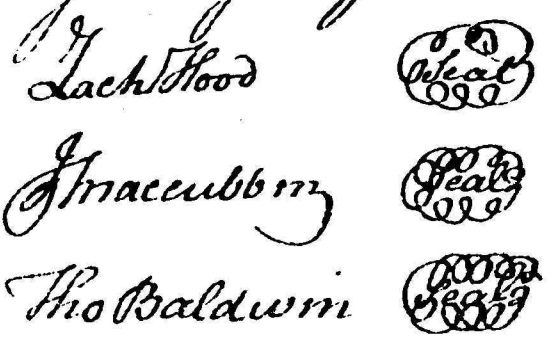 Zach Hood Seal
J Maccubbin Seal
Tho Baldwin Seal